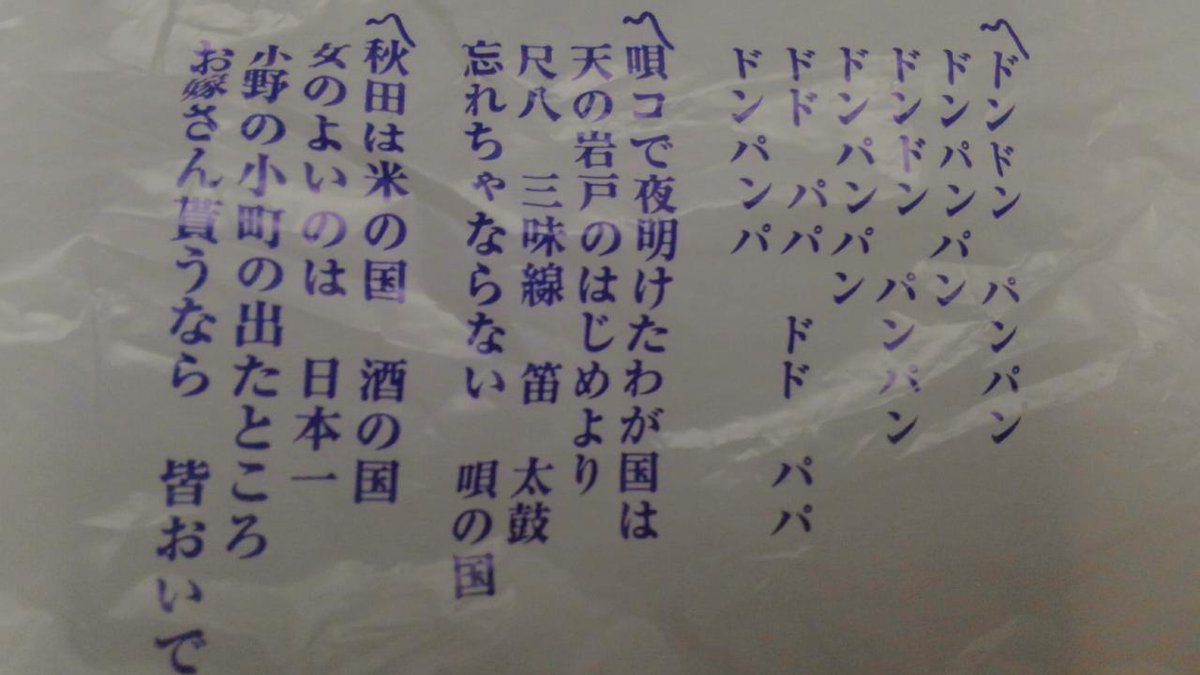 〽ドンドン パンパン
ドンパンパン
ドンドン パンパン
ドンパンパン
ドド パパ ドド パパ
ドンパンパ
〽唄コで夜明けたわが国は
天の岩戸のはじめより
尺八 三味線 笛 太鼓
忘れちゃならない 唄の国
〽秋田は米の国 酒の国
女のよいのは 日本一
小野の小町の出たところ
お嫁さん貰うなら 皆おいで